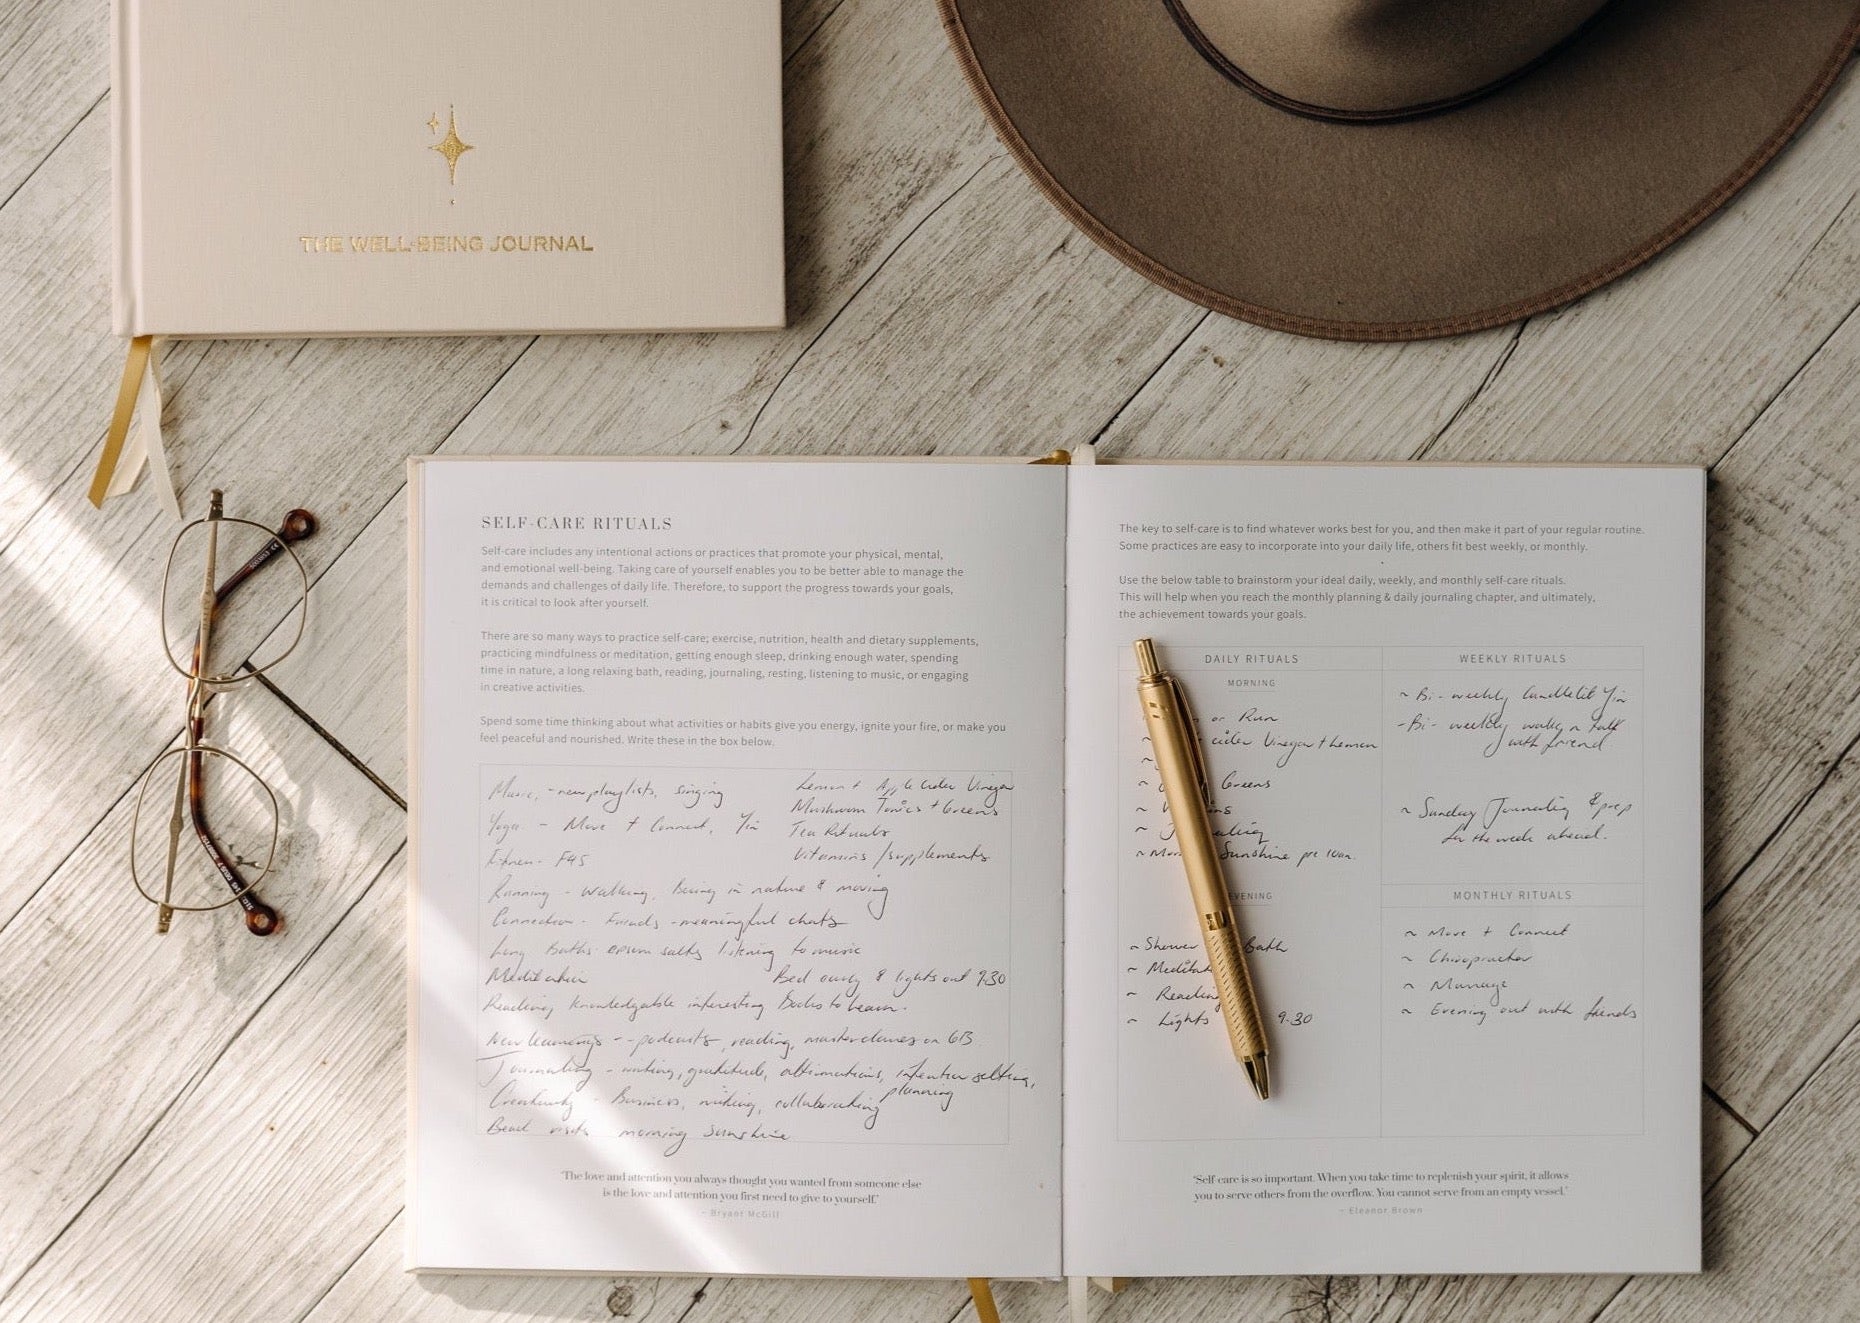 THE WELL-BEING JOURNAL
SELF-CARE RITUALS
Self-care includes any intentional actions or practices that promote your physical, mental,
and emotional well-being. Taking care of yourself enables you to be better able to manage the
demands and challenges of daily life. Therefore, to support the progress towards your goals,
it is critical to look after yourself.
There are so many ways to practice self-care; exercise, nutrition, health and dietary supplements,
practicing mindfulness or meditation, getting enough sleep, drinking enough water, spending
time in nature, a long relaxing bath, reading, journaling, resting, listening to music, or engaging
in creative activities.
Spend some time thinking about what activities or habits give you energy, ignite your fire, or make you
feel peaceful and nourished. Write these in the box below.
Music, - new playlists, singing
Yoga - Move + Connect, Yin
Fitness - F45
Running - walking, Being in nature & moving
Connection - Friends - meaningful chats
Long Baths epsom salts listening to music
Meditation
Reading knowledgable interesting Books to learn.
New learnings - - podcasts, reading, masterclasses on
Journaling - writing, gratitude, affirmations, intention setting,
planning
Creativity - Business, writing, collaborating
visits morning Sunshine
Lemon + Apple Cider Vinegar
Mushroom Tonics + Greens
Tea Rituals
Vitamins / supplements
Bed early & lights out 9.30
"The love and attention you always thought you wanted from someone else
is the love and attention you first need to give to yourself."
~ Bryant McGill
The key to self-care is to find whatever works best for you, and then make it part of your regular routine.
Some practices are easy to incorporate into your daily life, others fit best weekly, or monthly.
Use the below table to brainstorm your ideal daily, weekly, and monthly self-care rituals.
This will help when you reach the monthly planning & daily journaling chapter, and ultimately,
the achievement towards your goals.
DAILY RITUALS
MORNING
or Run
cider Vinegar + Lemon
Greens
Sunshine pre 10am.
EVENING
~ Shower Bath
~ Reading
~ Lights 9.30
WEEKLY RITUALS
~ Bi - weekly Candlelit Yin
- Bi - weekly walk n talk
with friend
~ Sunday Journaling & prep
for the week ahead.
MONTHLY RITUALS
~ Move + Connect
~ Chiropractor
~ Massage
~ Evening out with friends
"Self-care is so important. When you take time to replenish your spirit, it allows
you to serve others from the overflow. You cannot serve from an empty vessel."
~ Eleanor Brown